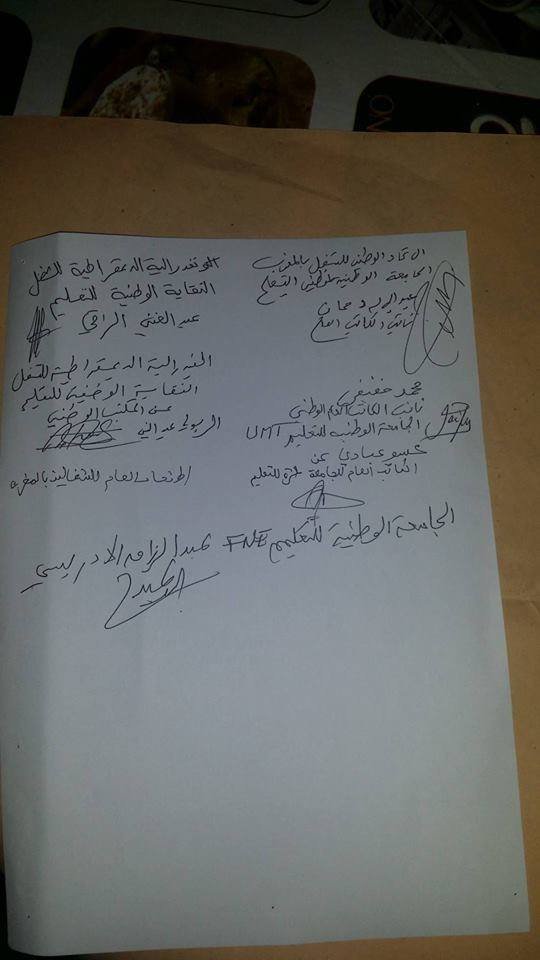 الاتحاد الوطني للشغل بالمغرب
الجامعة الوطنية لموظفي التعليم
عبد الإله دحمان
نائب الكاتب العام
الكونفدرالية الديمقراطية للشغل
النقابة الوطنية للتعليم
عبد الغني الراقي
محمد خفيفي
نائب الكاتب العام الوطني
الجامعة الوطنية للتعليم UMT
الفيدرالية الديمقراطية للشغل
النقابة الوطنية للتعليم
عن المكتب الوطني
عبد النبي
عن
الكاتب العام للجامعة الحرة للتعليم
الاتحاد العام للشغالين بالمغرب
الجامعة الوطنية للتعليم FNE عبد الرزاق الادريسي